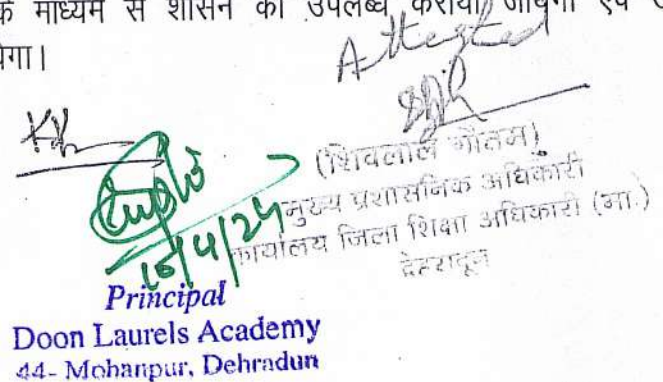 के माध्यम से शासन को उपलब्ध कराया जायेगा एवं
येगा।
Attested
(शिवलाल गौतम)
मुख्य प्रशासनिक अधिकारी
कार्यालय जिला शिक्षा अधिकारी (मा.)
देहरादून
16/4/24
Principal
Doon Laurels Academy
44- Mohanpur, Dehradun